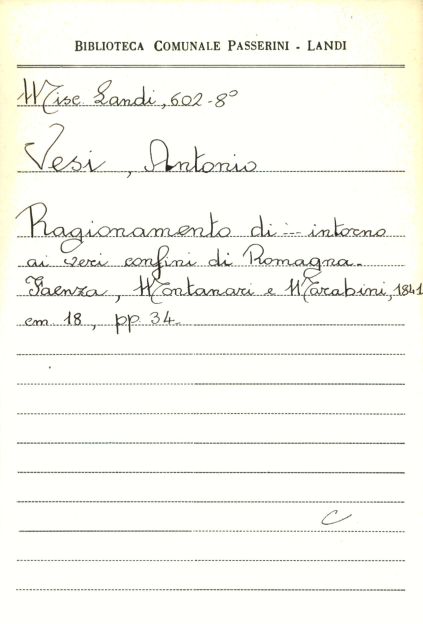 BIBLIOTECA COMUNALE PASSERINI - LANDI
Misc Landi, 602-8°
Vesi, Antonio
Ragionamento di ... intorno
ai veri confini di Romagna.
Faenza, Montanari e Marabini, 1841
cm 18, pp 34.
C